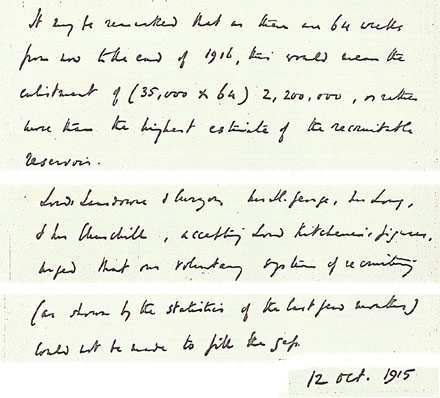 It may be remarked that as there are 64 weeks
from now to the end of 1916, this would mean the
enlistment of (35,000 x 64) 2,200,000, or rather
more than the highest estimate of the recruitable
reservoir.
Lords Lansdowne & Curzon Mr Ll. George, Mr Long,
& Mr Churchill, accepting Lord Kitchener's figures,
urged that our voluntary system of recruiting
(as shown by the statistics of the last few months)
could not be made to fill the gap.
12 Oct. 1915